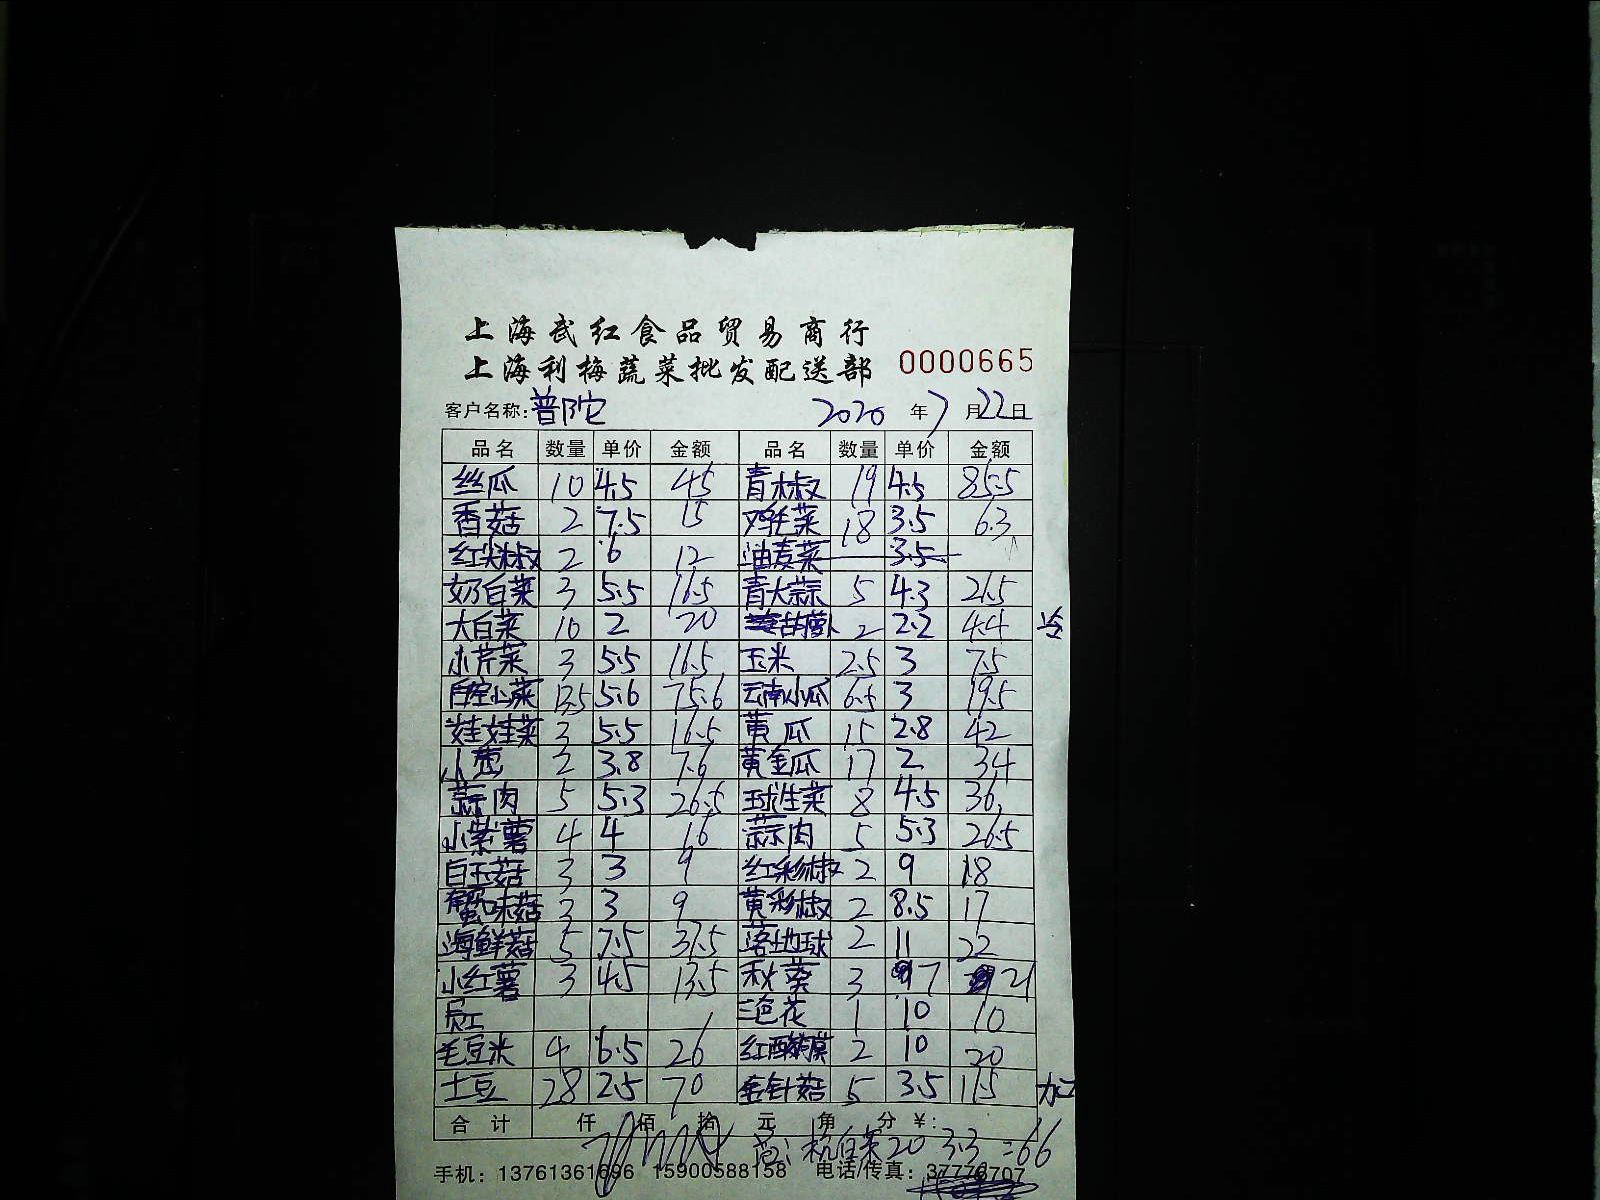 上海武红食品贸易商行
上海利梅蔬菜批发配送部 0000665
客户名称: 普陀 2020 年 7 月 22 日
品名 数量 单价 金额 品名 数量 单价 金额
丝瓜 10 4.5 45 青椒 19 4.5 85.5
香菇 2 7.5 15 鸡毛菜 18 3.5 63
红尖椒 2 6 12 油麦菜 3.5
奶白菜 3 5.5 16.5 青大蒜 5 4.3 21.5
大白菜 10 2 20 胡萝卜 2 2.2 4.4
小芹菜 3 5.5 16.5 玉米 2.5 3 7.5
白空心菜 13.5 5.6 75.6 云南小瓜 6.5 3 19.5
娃娃菜 3 5.5 16.5 黄瓜 15 2.8 42
小葱 2 3.8 7.6 黄金瓜 17 2 34
蒜肉 5 5.3 26.5 球生菜 8 4.5 36
小紫薯 4 4 16 蒜肉 5 5.3 26.5
白玉菇 3 3 9 红彩椒 2 9 18
蟹味菇 3 3 9 黄彩椒 2 8.5 17
海鲜菇 5 7.5 37.5 落地球 2 11 22
小红薯 3 4.5 13.5 秋葵 3 7 21
三色花 1 10 10
毛豆米 4 6.5 26 红酸模 2 10 20
土豆 28 2.5 70 金针菇 5 3.5 17.5 加工
合计 仟 佰 拾 元 角 分 ¥:
杭白菜 20 3.3 =66
手机: 13761361696 15900588158 电话/传真: 37776707